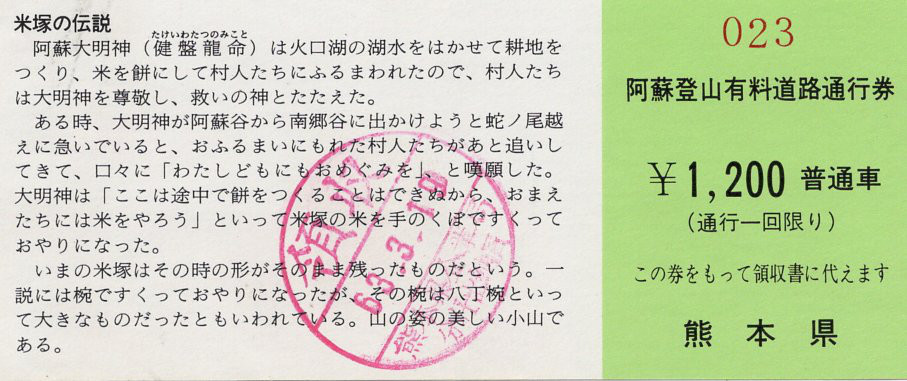 米塚の伝説
たけいわたつのみこと
阿蘇大明神（健盤龍命）は火口湖の湖水をはかせて耕地を
つくり、米を餅にして村人たちにふるまわれたので、村人たち
は大明神を尊敬し、救いの神とたたえた。
ある時、大明神が阿蘇谷から南郷谷に出かけようと蛇ノ尾越
えに急いでいると、おふるまいにもれた村人たちがあと追いし
てきて、口々に「わたしどもにもおめぐみを」、と嘆願した。
大明神は「ここは途中で餅をつくることはできぬから、おまえ
たちには米をやろう」といって米塚の米を手のくぼですくって
おやりになった。
いまの米塚はその時の形がそのまま残ったものだという。一
説には椀ですくっておやりになったが、その椀は八丁椀といっ
て大きなものだったともいわれている。山の姿の美しい小山で
ある。
領収
63.3.19
023
阿蘇登山有料道路通行券
￥1,200 普通車
（通行一回限り）
この券をもって領収書に代えます
熊本県